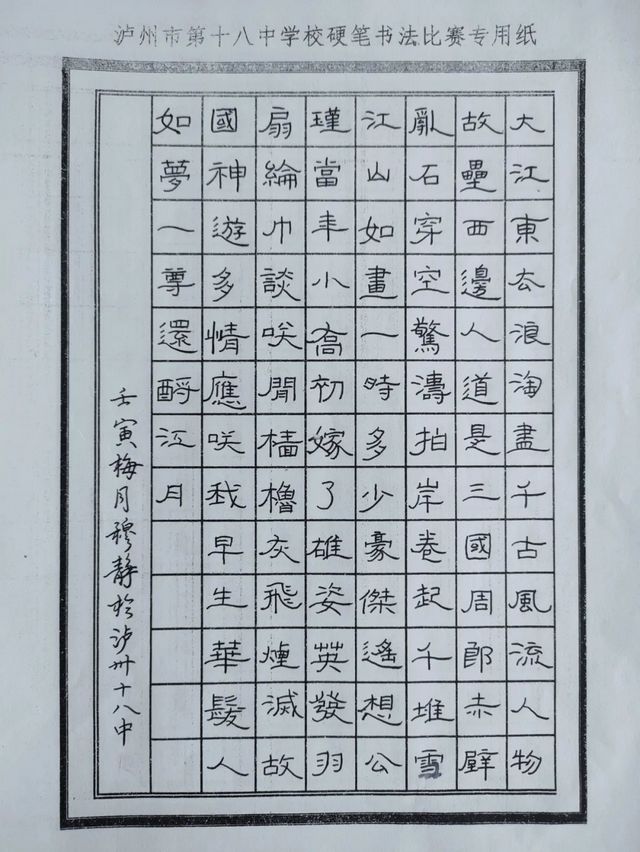 泸州市第十八中学校硬笔书法比赛专用纸
大江東去浪淘盡千古風流人物
故壘西邊人道是三國周郎赤壁
亂石穿空驚濤拍岸卷起千堆雪
江山如畫一時多少豪傑遙想公
瑾當年小喬初嫁了雄姿英發羽
扇綸巾談咲間檣櫓灰飛煙滅故
國神遊多情應咲我早生華髮人
如夢一尊還酹江月
壬寅梅月穆静於泸州十八中